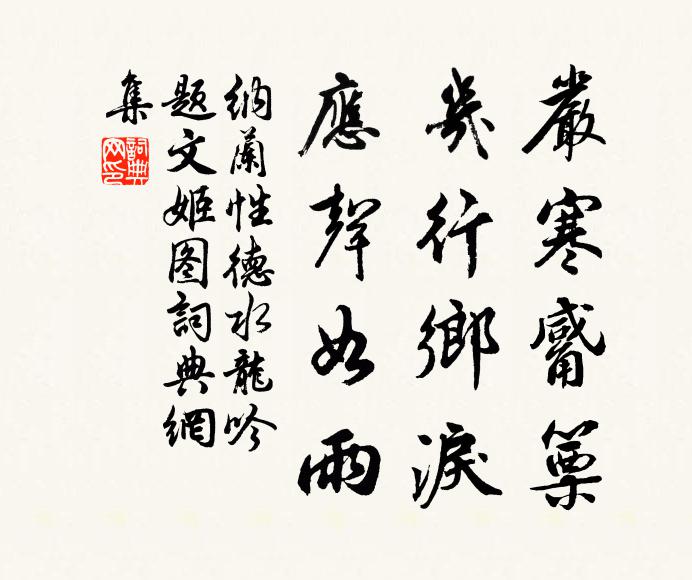 嚴寒觱篥
幾行鄉淚
應聲如雨
納蘭性德水龍吟
題文姬图詞典網
集
詞典网印